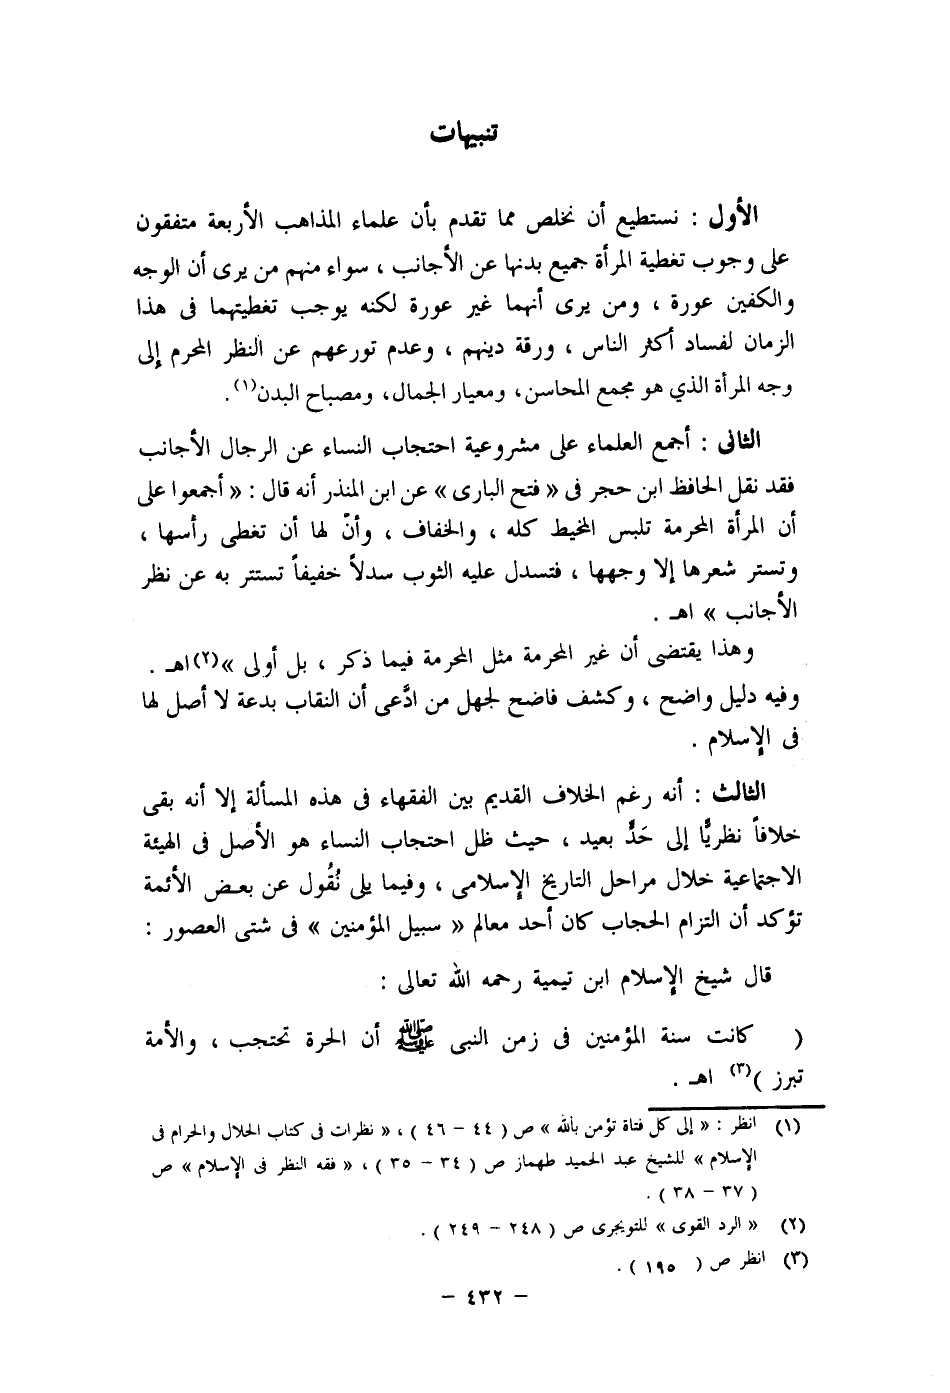 تنبيهات
الأول : نستطيع أن نخلص مما تقدم بأن علماء المذاهب الأربعة متفقون
على وجوب تغطية المرأة جميع بدنها عن الأجانب ، سواء منهم من يرى أن الوجه
والكفين عورة ، ومن يرى أنهما غير عورة لكنه يوجب تغطيتهما فى هذا
الزمان لفساد أكثر الناس ، ورقة دينهم ، وعدم تورعهم عن النظر المحرم إلى
وجه المرأة الذي هو مجمع المحاسن، ومعيار الجمال، ومصباح البدن(١).
الثانى : أجمع العلماء على مشروعية احتجاب النساء عن الرجال الأجانب
فقد نقل الحافظ ابن حجر فى « فتح البارى » عن ابن المنذر أنه قال : « أجمعوا على
أن المرأة المحرمة تلبس المخيط كله ، والخفاف ، وأنّ لها أن تغطى رأسها ،
وتستر شعرها إلا وجهها ، فتسدل عليه الثوب سدلاً خفيفاً تستتر به عن نظر
الأجانب » اهـ .
وهذا يقتضى أن غير المحرمة مثل المحرمة فيما ذكر ، بل أولى »(٢)اهـ .
وفيه دليل واضح ، وكشف فاضح لجهل من ادَّعى أن النقاب بدعة لا أصل لها
فى الإسلام .
الثالث : أنه رغم الخلاف القديم بين الفقهاء فى هذه المسألة إلا أنه بقى
خلافاً نظريًّا إلى حَدٍّ بعيد ، حيث ظل احتجاب النساء هو الأصل فى الهيئة
الاجتماعية خلال مراحل التاريخ الإسلامى ، وفيما يلى نُقُول عن بعض الأئمة
تؤكد أن التزام الحجاب كان أحد معالم « سبيل المؤمنين » فى شتى العصور :
قال شيخ الإسلام ابن تيمية رحمه الله تعالى :
( كانت سنة المؤمنين فى زمن النبى ﷺ أن الحرة تحتجب ، والأمة
تبرز )(٣) اهـ .
(١) انظر : « إلى كل فتاة تؤمن بالله » ص ( ٤٤ – ٤٦ ) ، « نظرات فى كتاب الحلال والحرام فى
الإسلام » للشيخ عبد الحميد طهماز ص ( ٣٤ – ٣٥ ) ، « فقه النظر فى الإسلام » ص
( ٣٧ – ٣٨ ) .
(٢) « الرد القوى » للتويجرى ص ( ٢٤٨ – ٢٤٩ ) .
(٣) انظر ص ( ١٩٥ ) .
– ٤٣٢ –